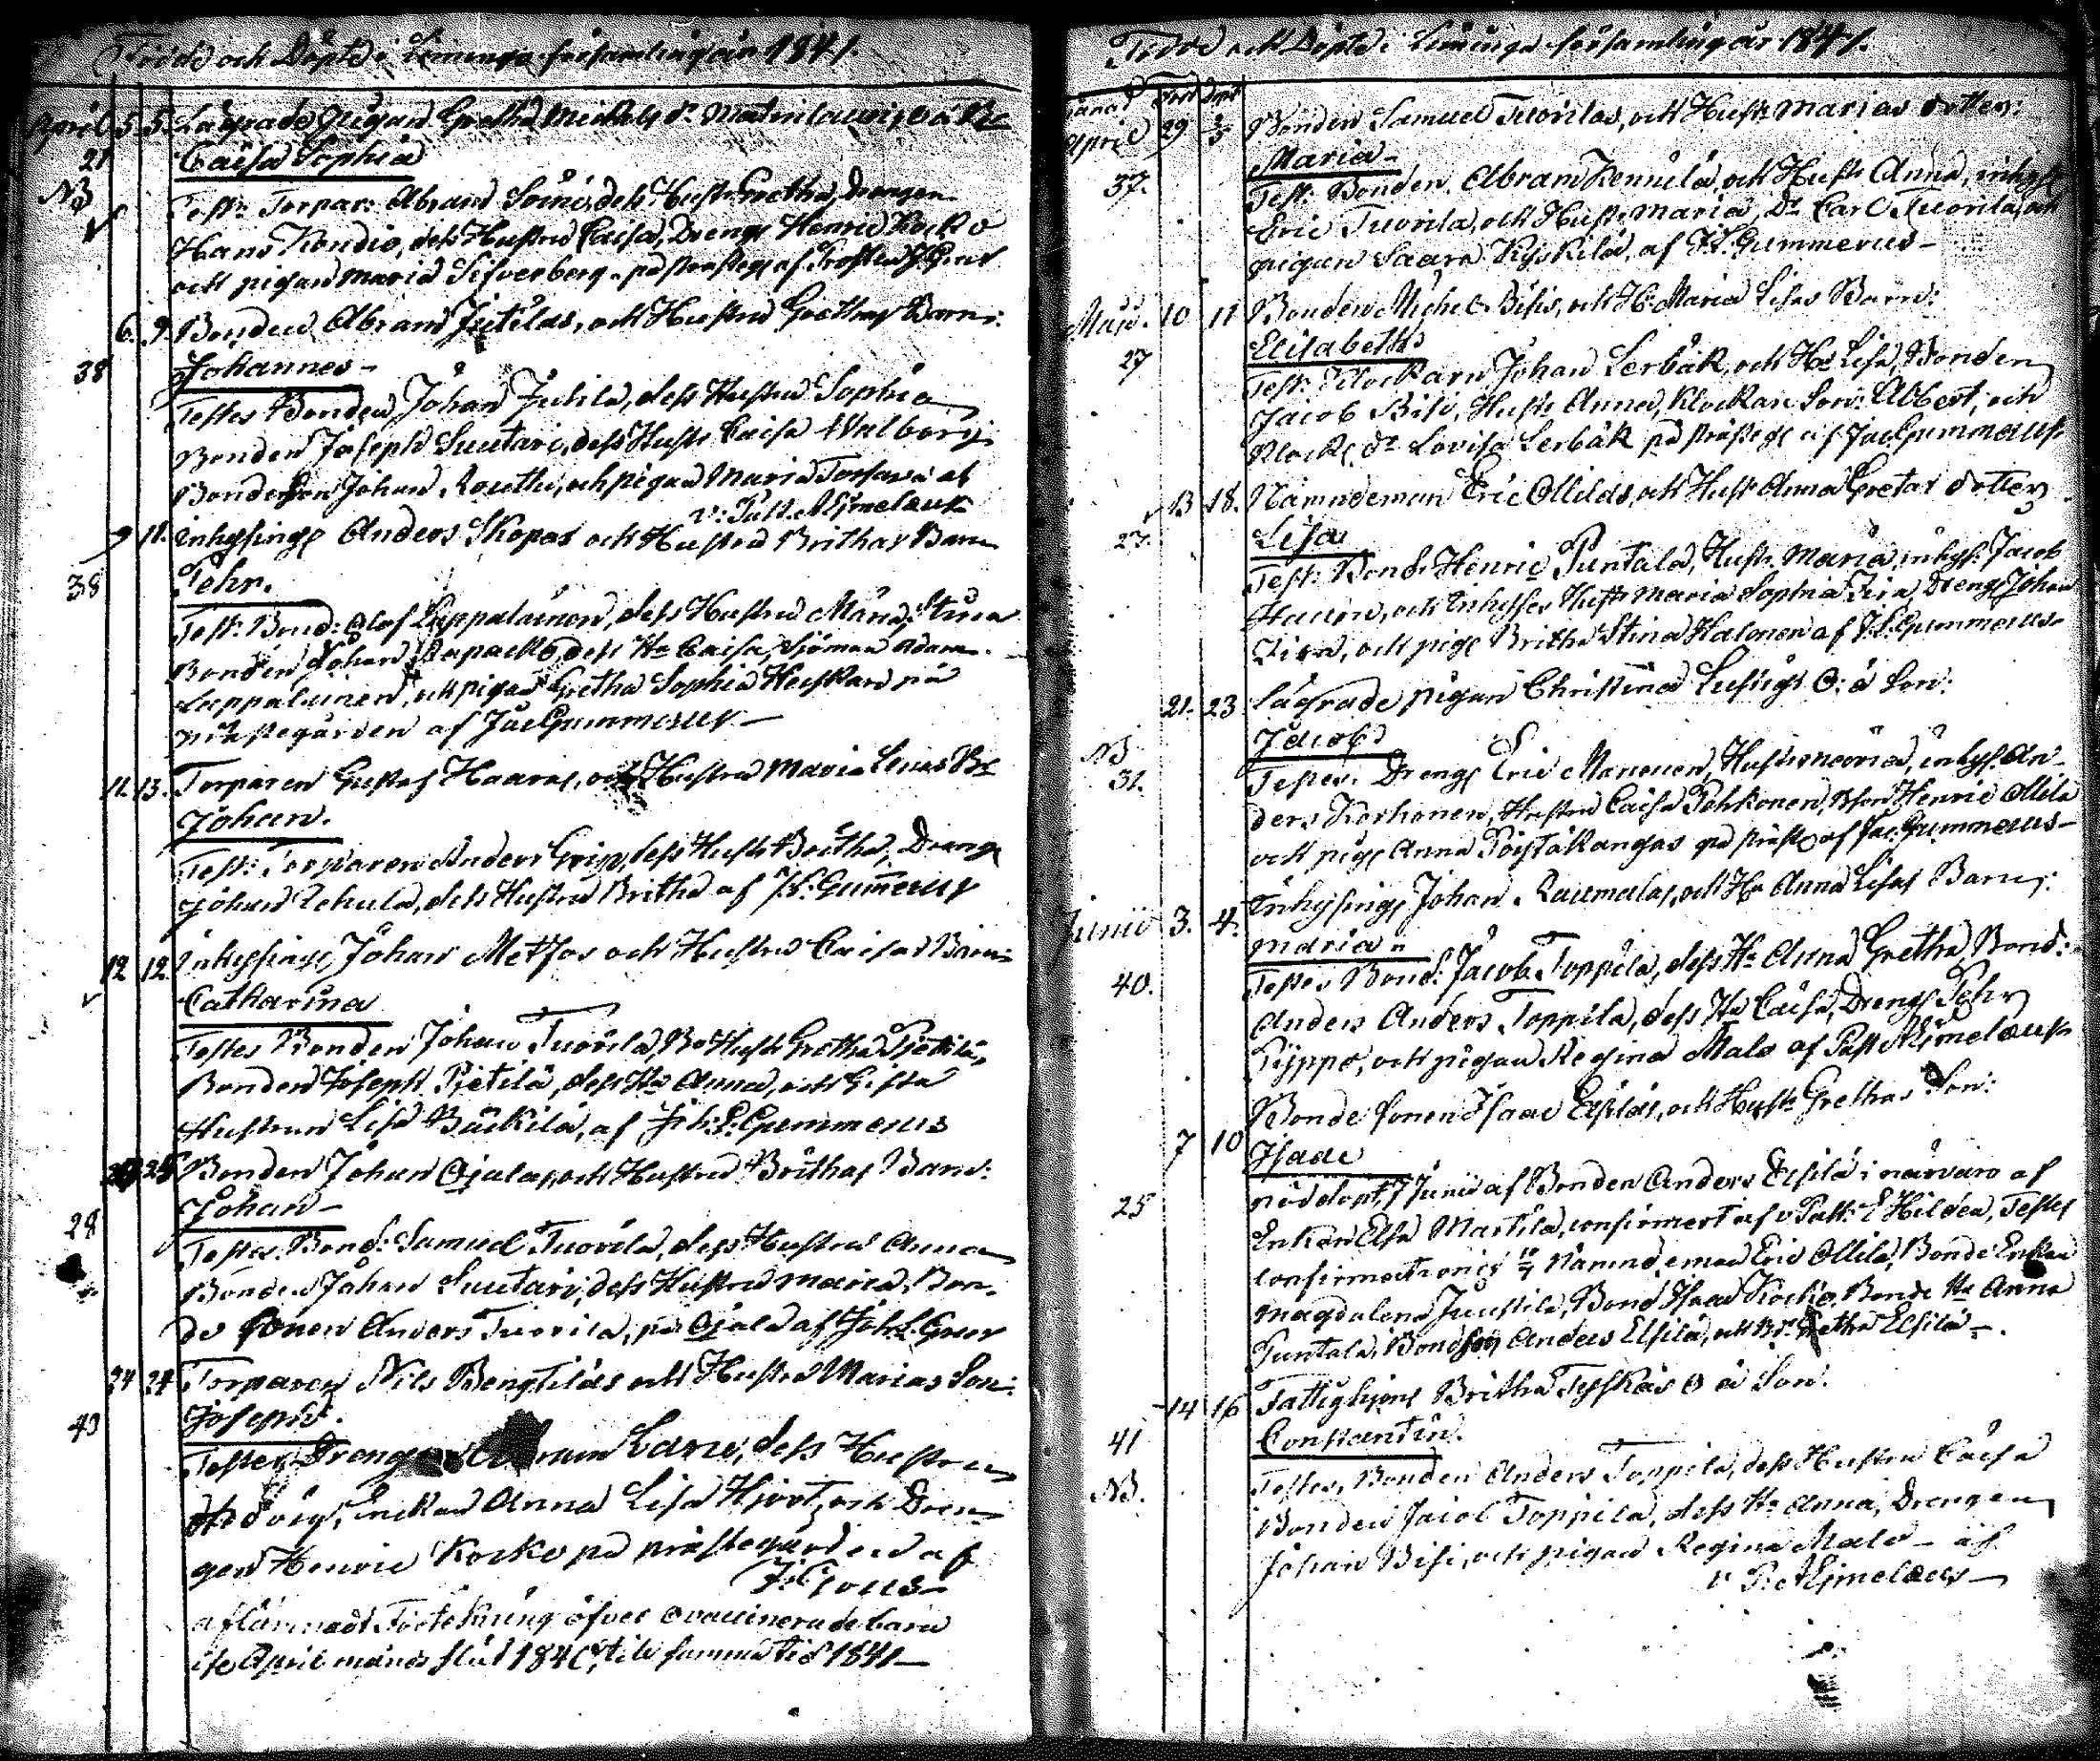 Födde och Döpte i Limingo församling år 1841.
April 5 5. Lägrade Pigan Gretha Michels dr o ä Bn
21 Caisa Sophia
NB Test: Torpar: Abram Soini, dess Hustr Gretha, Drengen
Hans Kondio, dess Hustru Caisa, Dreng Henric Kocko
och pigan Maria Silfverberg på prästeg. af
6. 9. Bonden Abram Jutilas, och Hustru Grethas Barn:
38 Johannes -
Testes Bonden Johan Jutila, dess Hustru Sophia
Bonden Joseph Suutari, dess Hustr Caisa Walborg
Bondeson Johan Routhu, och pigan Maria af
v: Past. Aljmelæus
9 11. Inhysings Anders Skopas och Hustru Brithas Barn
38 Pehr.
Test: Bond: Olof Lappalainen, dess Hustru Maria Stina
Bonden Johan Papacko dess Ha Caisa, Sjöman Adam
Lappalainen, och pigan Gretha Sophia Huskard på
prästegården af Jac Gummerus -
11. 13. Torparen Gustaf Haaras, och Hustru Maria Lenas Bn
Johan.
Test: Torparen Anders Grip, dess Hustr Britha, Dreng
Johan Lehula, dess Hustru Britha af J:L: Gummerus
12 12. Inhysings Johan Metsos och Hustru Caisas Barn
Catharina
Testes Bonden Johan Tuorila, Bo Hustr Gretha Pietilä,
Bonden Joseph Pietilä, dess Ha Anna, och Gifta
Hustrun Lisa Bäckilä, af Joh: L: Gummerus
25 Bonden Johan Ojalas, och Hustru Brithas Barn:
Johan -
28 Testes: Bond: Samuel Tuorila, dess Hustru Anna
Bonden Johan Suutari, dess Hustru Maria, Bon-
de sonen Anders Tuorila, på Ojala af Joh. L. Grus
24 24 Torparen Nils Bengtiläs och Hustru Marias Son:
Joseph.
40 Testes, Dreng Lares, dess Hustru
Hedvig, Enckan Anna Lisa Hjort, och Dren-
gen Henric Kocko på prästegården af
J:L:Grus
aflämnadt Förtekning öfver ovaccinerade barn
ifr April månds slut 1840, till samma tid 1841 -
Födde och Döpte i Limingo församling år 1841.
Månad Född Döpt
April 29 2/5 Bonden Samuel Tuorilas, och Hustr Marias dotter:
Maria -
37. Test: Bonden Abram Kennilä, och Hustr Anna, inhys
Eric Tuorila, och Hustr Maria, Dr Carl Tuorila, och
pigan Saara Kyskilä, af J:L. Gummerus -
Maji. 10 11 Bonden Michel Bisis, och Ha Maria Lisas Barn:
Elisabeth
27 Test: Klockarn Johan Lerbäk, och Ha Lisa, Bonden
Jacob Bisi, Hustr Anna, Klockare Son: Albert, och
Klock: dr Lovisa Lerbäk på prästeg: af Jac Gummerus
13 18. Nämndeman Eric Ollilas, och Hustr Anna Gretas dotter
27. Lisa
Test: Bond: Henric Puntala, Hustr Maria, inhys: Jacob
och Inhyses Hustr Maria Sophia Zira, Dreng Johan
Zira, och pig: Britha Stina Halonen af J:L: Gummerus
21. 23 Lägrade pigan Christina Lustigs O: ä Son:
NB Jacob
31. Testes: Dreng Eric Manouen, Hustr Maria, inhys. An-
ders Korhonen, Hustru Caisa Pehkonen, Bson: Henric Ollila
och pig: Anna Pöystäkangas på präst: af Jac: Gummerus -
Junii 3. 4. Inhysings Johan Raumalas, och Ha Anna Lisas Barn:
Maria
40. Testes Bond: Jacob Toppila, dess Ha Anna Gretha, Bond:
Anders Anders Toppila, dess Ha Caisa, Dreng Pehr
Pyppo, och pigan Regina Malo af Past Aljmelæus
7 10 Bonde Sonen Isaac Elsiläs, och Hustr Grethas Son:
Isaac
nöddöpt 7 Junii af Bonden Anders Elsilä i närvaro af
25 Enkan Elsa Martila, confirmert af v Past: E Hildén, Testes
Confirmationis 10/7 Nämndeman Eric Ollila, Bonde Enkan
Magdalena Juustila, Bond Isaac Kocko, Bonde Ha Anna
Puntala, Bondson Anders Elsilä, och Bdr Gretha Elsilä -.
14 16 Fattighjons Britha Tyskäs O ä Son.
41 Constantin.
NB. Testes, Bonden Anders Toppila, dess Hustru Caisa
Bonden Jacob Toppila, dess Ha Anna, Drengen
Johan Bisi, och pigan Regina Malo - af
v P. Aljmelæus -